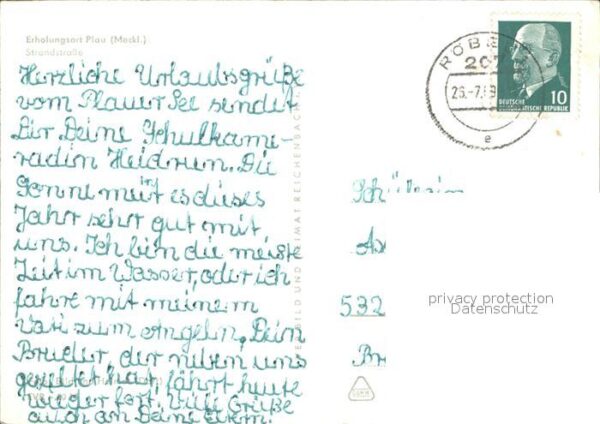 Erholungsort Plau (Meckl.)
Strandstraße
Herzliche Urlaubsgrüße
vom Plauer See sendet
Dir Deine Schulkame-
radin Heidrun. Die
Sonne meint es dieses
Jahr sehr gut mit
uns. Ich bin die meiste
Zeit im Wasser, oder ich
fahre mit meinem
Vati zum Angeln. Dein
Bruder, der neben uns
gezeltet hat, fährt heute
wieder fort. Viele Grüße
auch an Deine Eltern.
BILD UND HEIMAT REICHENBACH
RÖBE
207
26.-7.
e
DEUTSCHE
DEMOKRATISCHE REPUBLIK
10
Schülerin
532
privacy protection
Datenschutz